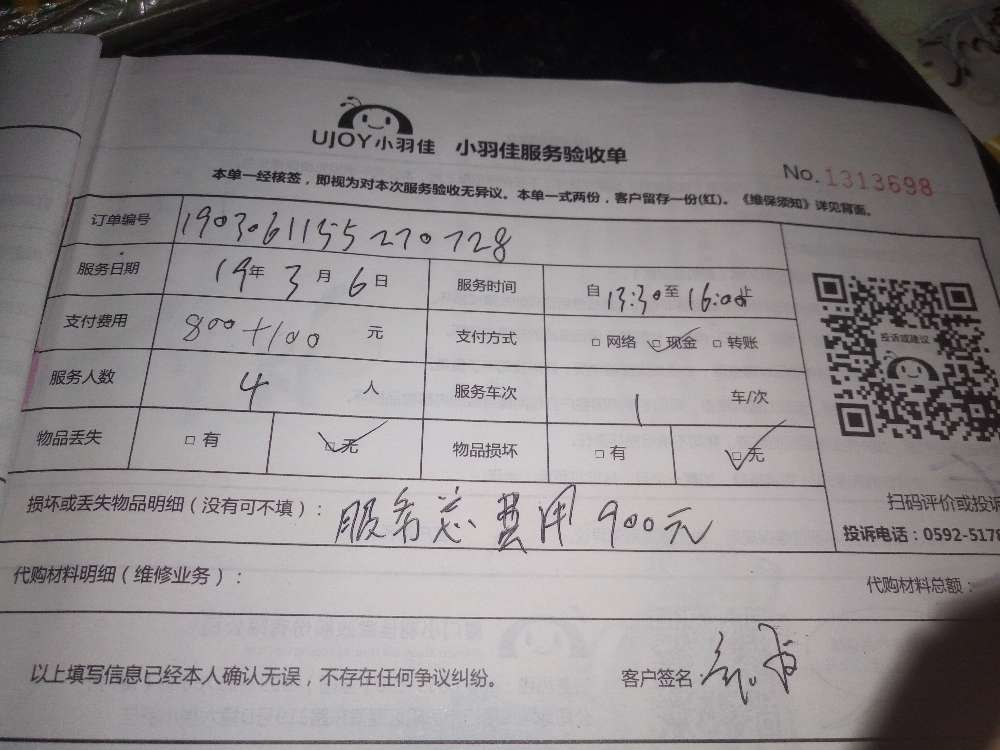 UJOY小羽佳 小羽佳服务验收单
No.1313698
本单一经核签，即视为对本次服务验收无异议。本单一式两份，客户留存一份(红)。《维保须知》详见背面。
订单编号 1903061155270728
服务日期 19年 3月 6日 服务时间 自13:30至16:00止
支付费用 800+100 元 支付方式 □网络 ☑现金 □转账
服务人数 4 人 服务车次 1 车/次
物品丢失 □有 ☑无 物品损坏 □有 ☑无
投诉或建议
扫码评价或投诉
投诉电话：0592-5178
损坏或丢失物品明细（没有可不填）：服务总费用900元
代购材料明细（维修业务）： 代购材料总额：
以上填写信息已经本人确认无误，不存在任何争议纠纷。 客户签名：